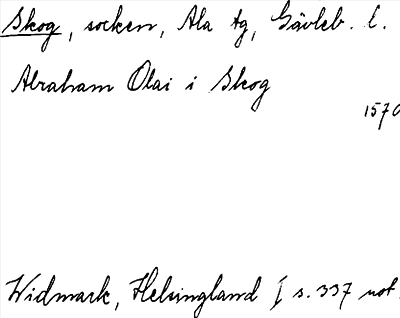 Skog, socken, Ala tg, Gävleb. l.
Abraham Olai i Skog
1570
Widmark, Helsingland I s. 337 not.